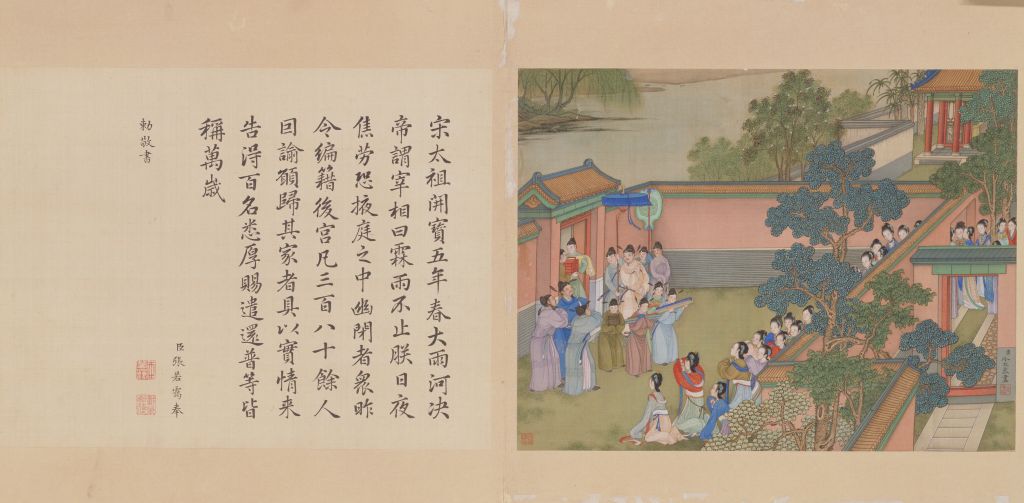 宋太祖開寶五年春大雨河决
帝謂宰相曰霖雨不止朕日夜
焦勞恐掖庭之中幽閉者衆昨
令編籍後宮凡三百八十餘人
囙諭願歸其家者具以實情来
告淂百名悉厚賜遣還普等皆
稱萬歲
臣張若靄奉
勅敬書